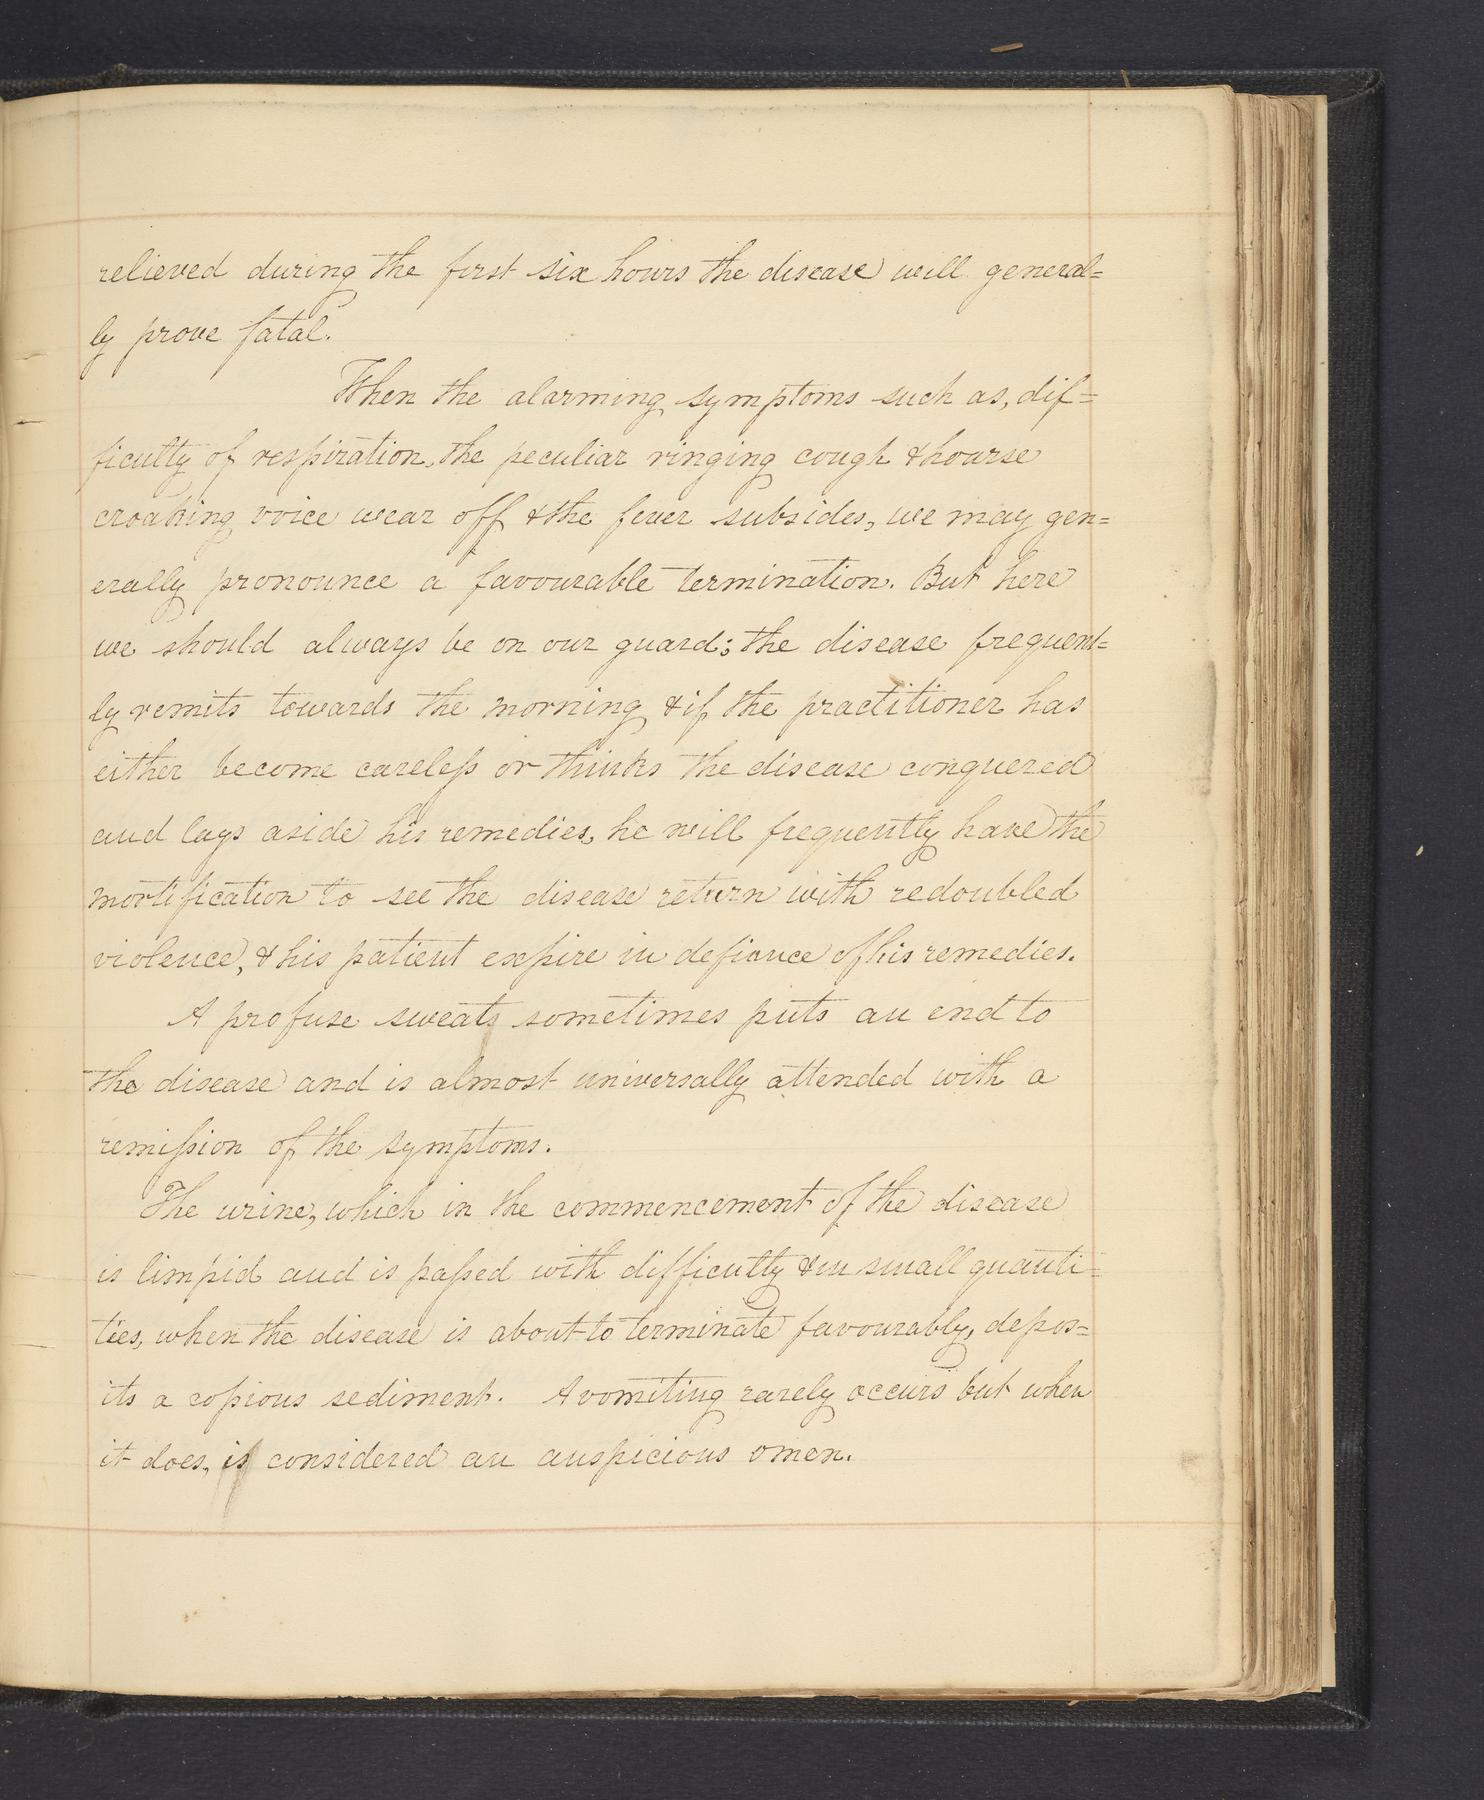 relieved during the first six hours the disease will general=
ly prove fatal.
When the alarming symptoms such as, dif=
ficulty of respiration, the peculiar ringing cough & hoarse
croaking voice wear off & the fever subsides, we may gen=
erally pronounce a favourable termination. But here
we should always be on our guard; the disease frequent=
ly remits towards the morning & if the practitioner has
either become careless or thinks the disease conquered
and lays aside his remedies, he will frequently have the
mortification to see the disease return with redoubled
violence, & his patient expire in defiance of his remedies.
A profuse sweats sometimes puts an end to
the disease and is almost universally attended with a
remission of the symptoms.
The urine, which in the commencement of the disease
is limpid and is passed with difficulty & in small quanti=
ties, when the disease is about to terminate favourably, depos=
its a copious sediment. A vomiting rarely occurs but when
it does, is considered an auspicious omen.